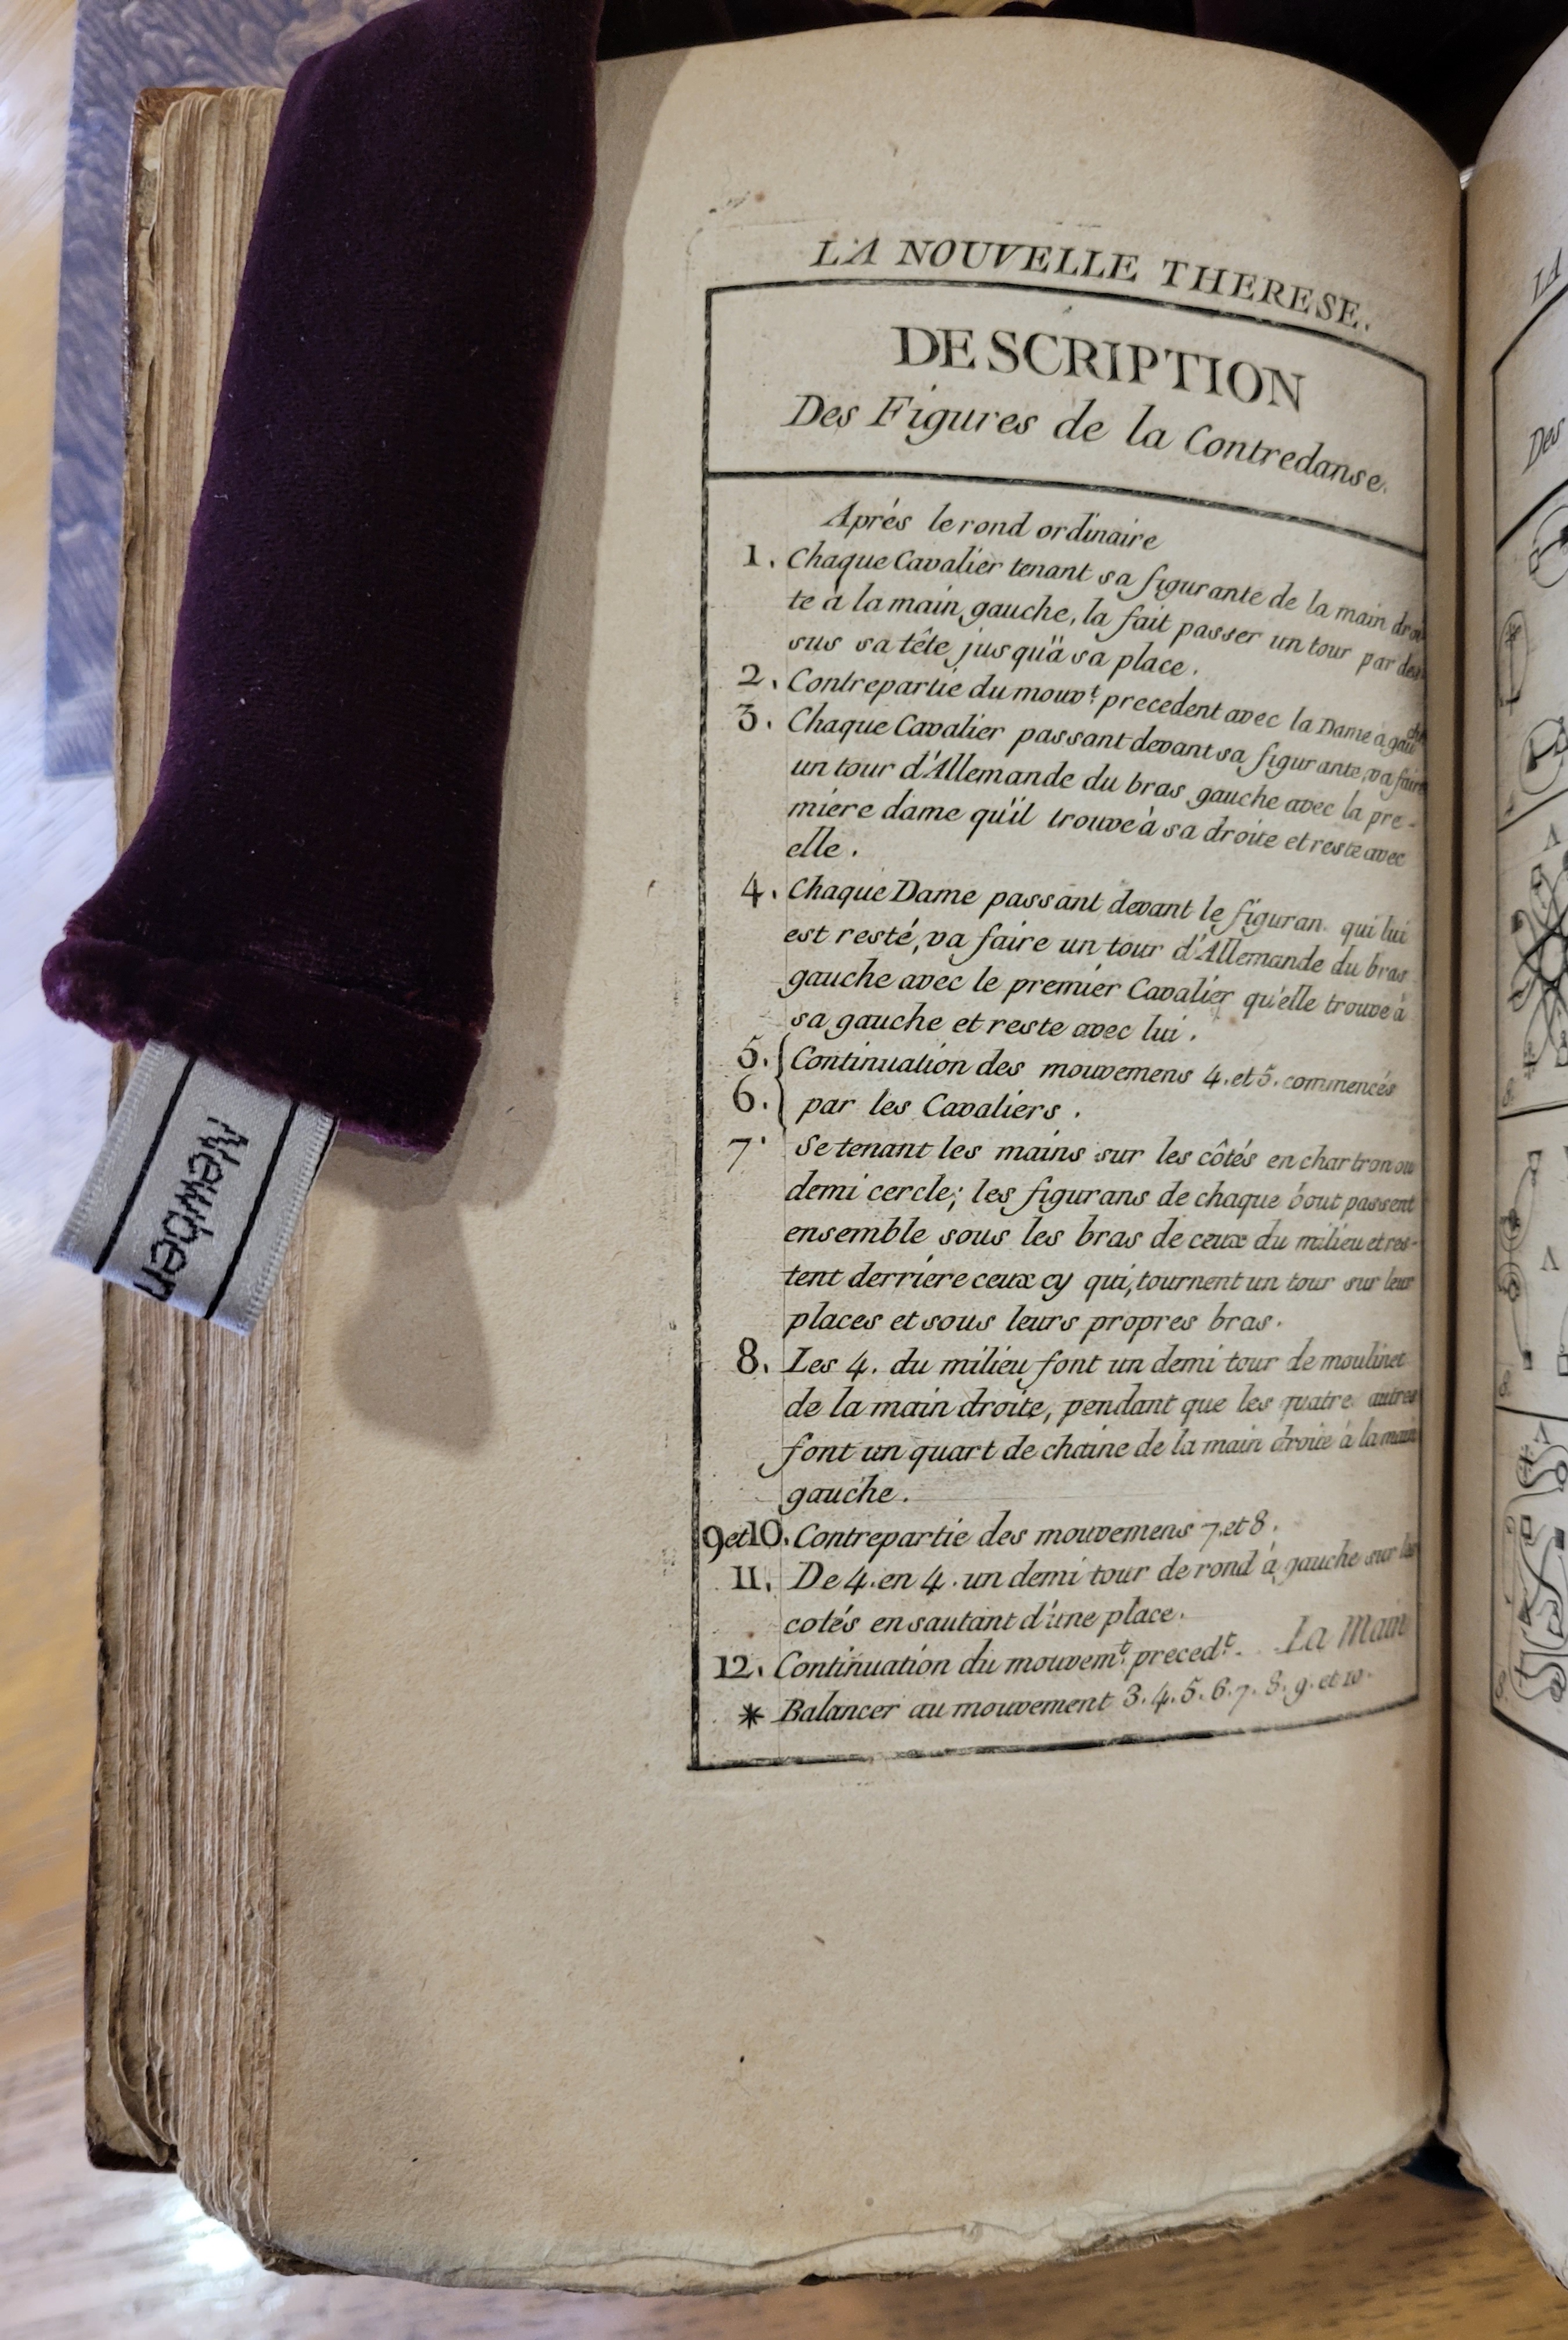 LA NOUVELLE THERESE.
DESCRIPTION
Des Figures de la Contredanse.
Aprés le rond ordinaire
1. Chaque Cavalier tenant sa figurante de la main droi
te à la main gauche, la fait passer un tour par des
sus sa tête jusqu'à sa place.
2. Contrepartie du mouvt. precedent avec la Dame a gauche
3. Chaque Cavalier passant devant sa figurante, va faire
un tour d'Allemande du bras gauche avec la pre-
miere dame qu'il trouve à sa droite et reste avec
elle.
4. Chaque Dame passant devant le figuran qui lui
est resté, va faire un tour d'Allemande du bras
gauche avec le premier Cavalier qu'elle trouve à
sa gauche et reste avec lui.
5. Continuation des mouvemens 4. et 5. commencés
6. par les Cavaliers.
7. Se tenant les mains sur les côtés en chartron ou
demi cercle; les figurans de chaque bout passent
ensemble sous les bras de ceux du milieu et res-
tent derriere ceux cy qui, tournent un tour sur leur
places et sous leurs propres bras.
8. Les 4. du milieu font un demi tour de moulinet
de la main droite, pendant que les quatre autres
font un quart de chaine de la main droite à la main
gauche.
9 et 10. Contrepartie des mouvemens 7. et 8.
11. De 4. en 4. un demi tour de rond à gauche sur les
cotés en sautant d'une place.
12. Continuation du mouvemt. precedt. La Main
* Balancer au mouvement 3. 4. 5. 6. 7. 8. 9. et 10.
Newber
LA
Des